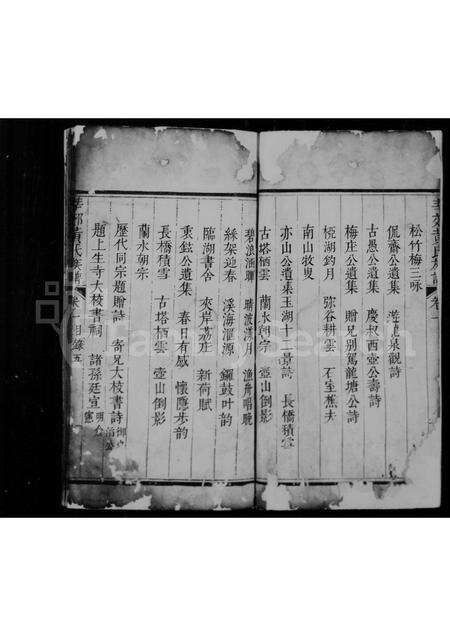 松竹梅三咏
侃齋公遺集 遊龍泉觀詩
古愚公遺集 慶叔西壺公壽詩
梅庄公遺集 贈兄別駕龍塘公詩
桓湖釣月 弥谷耕雲 石室蕉夫
南山牧叟
亦山公遺集玉湖十二景詩 長橋積雪
古塔栖雲 蘭水朝宗 壺山倒影
碧浪漁聯 晴波浸月 漁舟唱晚
綵架迎春 溪海滙源 鑼鼓叶韵
臨湖書舍 夾岸荔庄 新荷賦
秉鉉公遺集 春日有感 懷隱步韵
長橋積雪 古塔栖雲 壺山倒影
蘭水朝宗
歴代同宗題贈詩 寄兄大枝書詩
題上生寺大枝書祠 諸孫廷宣
黃氏族譜 卷一目錄五